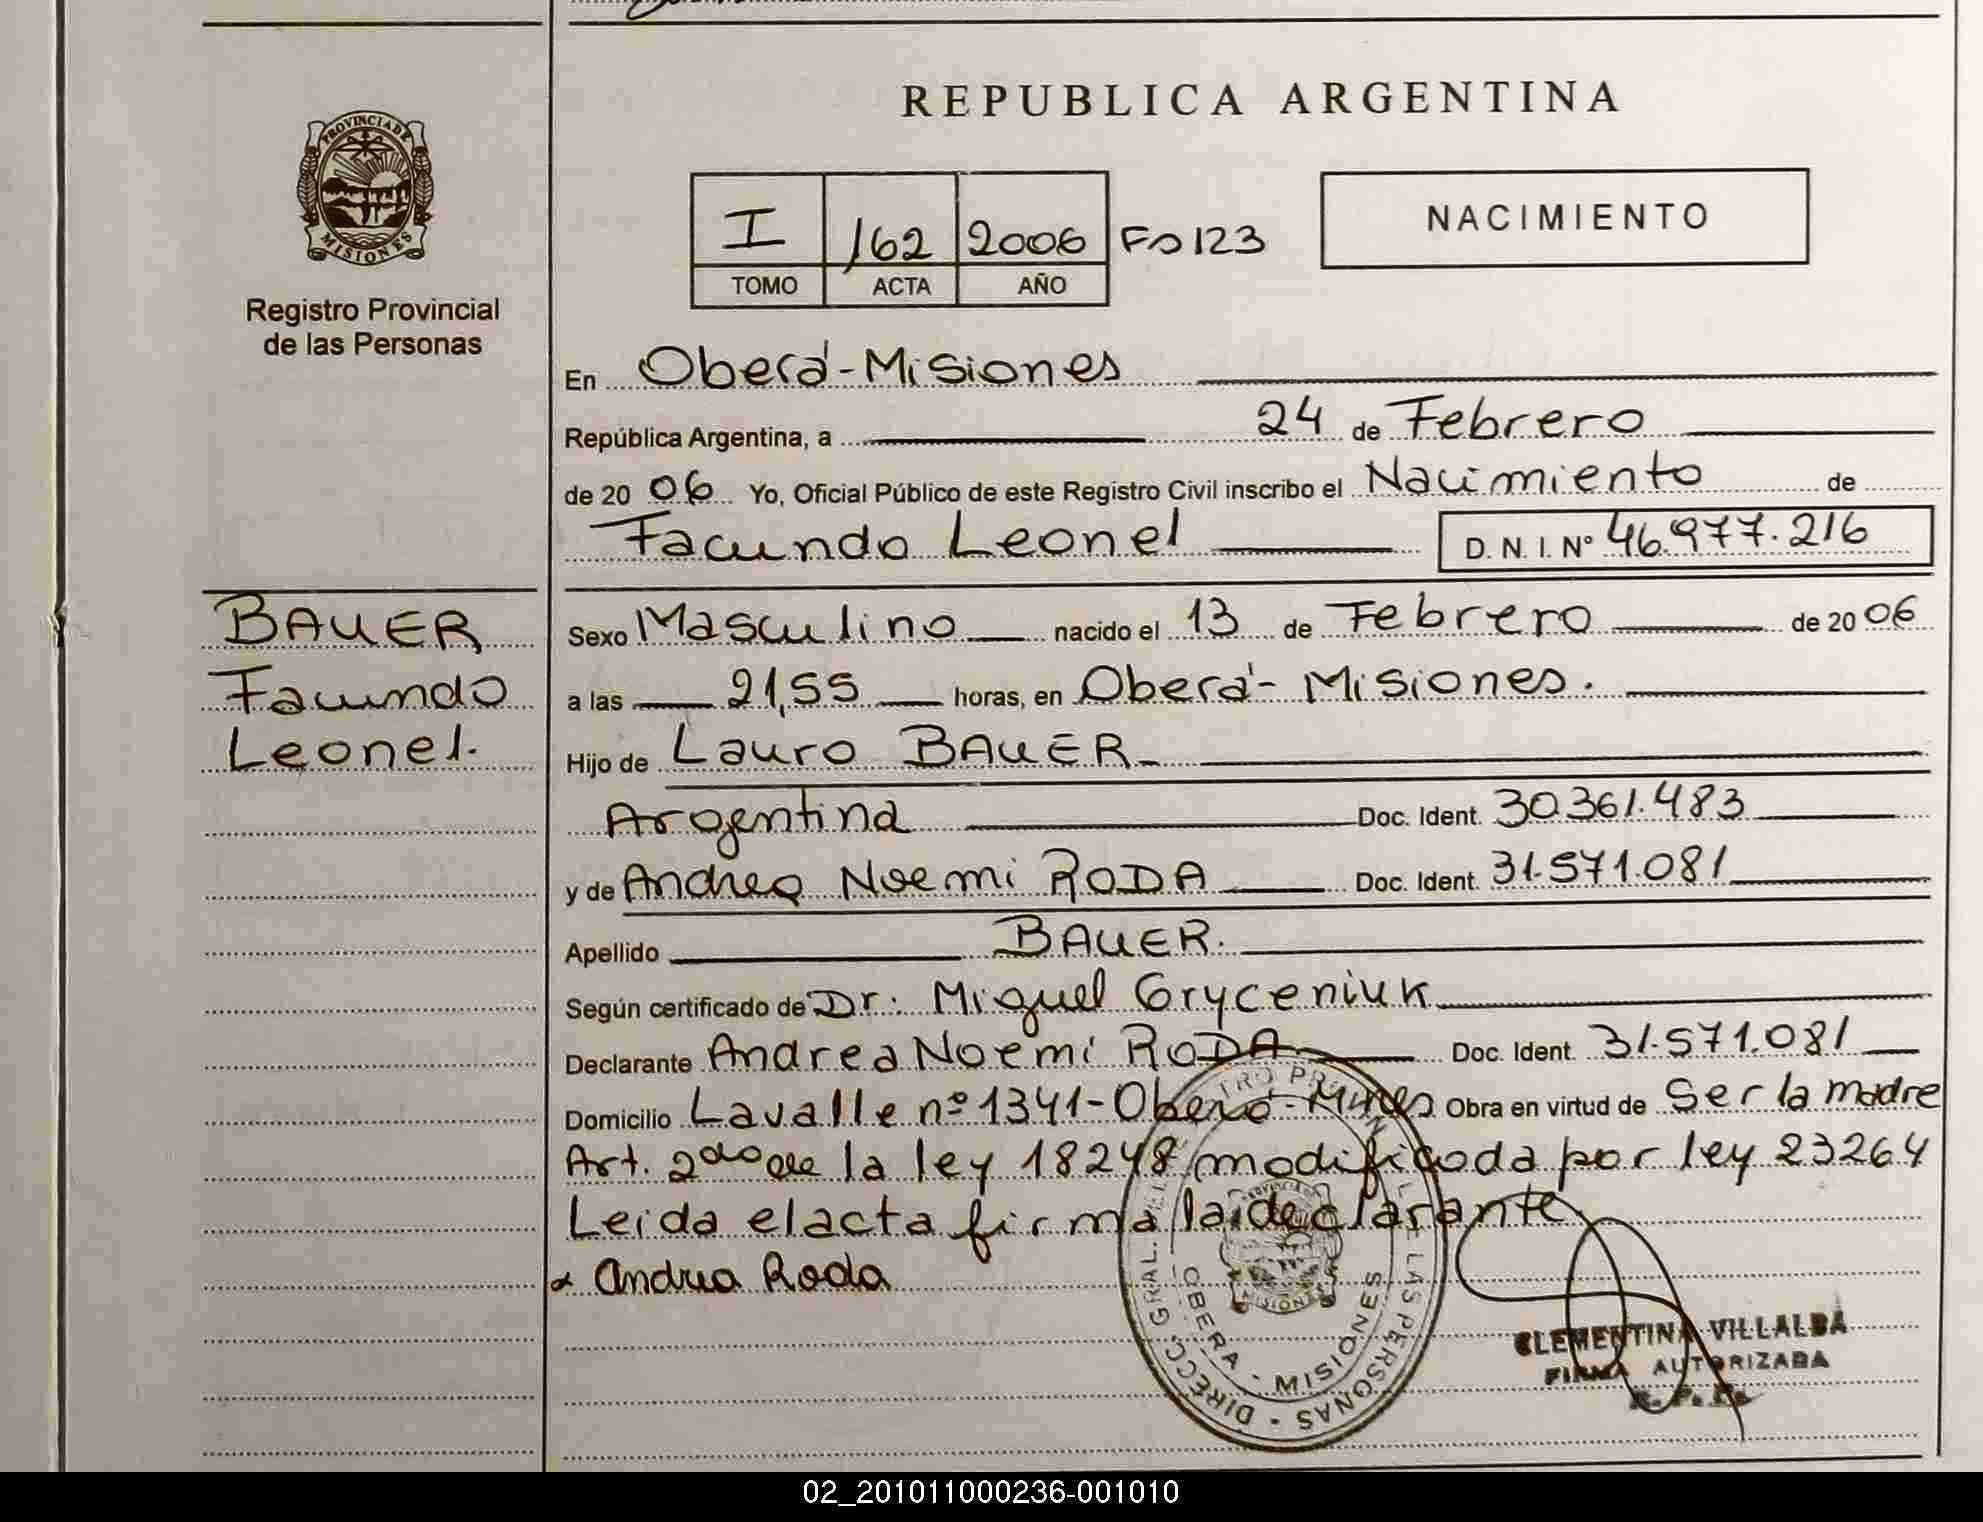 REPUBLICA ARGENTINA
PROVINCIA DE MISIONES
Registro Provincial
de las Personas
I 162 2006 Fo 123
TOMO ACTA AÑO
NACIMIENTO
En Oberá - Misiones
República Argentina, a 24 de Febrero
de 20 06 Yo, Oficial Público de este Registro Civil inscribo el Nacimiento de
Facundo Leonel D. N. I. Nº 46.977.216
BAUER
Facundo
Leonel.
Sexo Masculino nacido el 13 de Febrero de 20 06
a las 21,55 horas, en Oberá - Misiones.
Hijo de Lauro BAUER
Argentina Doc. Ident. 30.361.483
y de Andrea Noemi RODA Doc. Ident. 31.571.081
Apellido BAUER.
Según certificado de Dr: Miguel Gryceniuk
Declarante Andrea Noemi RODA Doc. Ident. 31.571.081
Domicilio Lavalle nº 1341 - Oberá - Mnes Obra en virtud de Ser la madre
Art. 2do de la ley 18248 modificada por ley 23264
Leida el acta firma la declarante
Andrea Roda
DIRECC. GRAL. DE LAS PERSONAS
OBERA - MISIONES
CLEMENTINA VILLALBA
FIRMA AUTORIZADA
R. P. P.
02_201011000236-001010